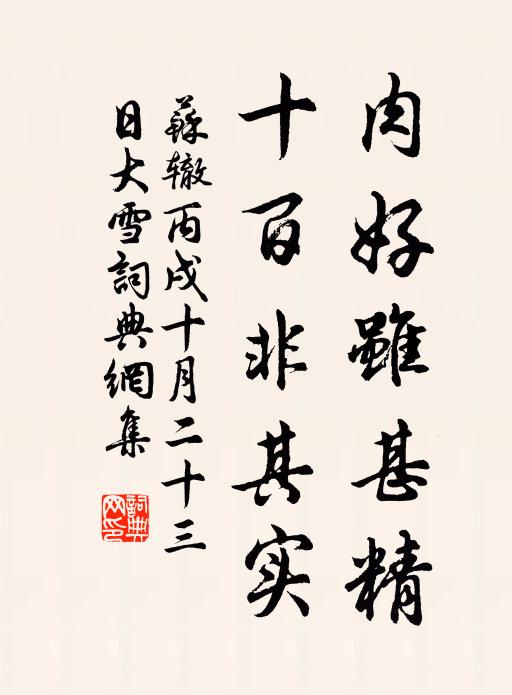 肉好雖甚精
十百非其实
蘇辙丙戌十月二十三
日大雪詞典網集
詞典
网印